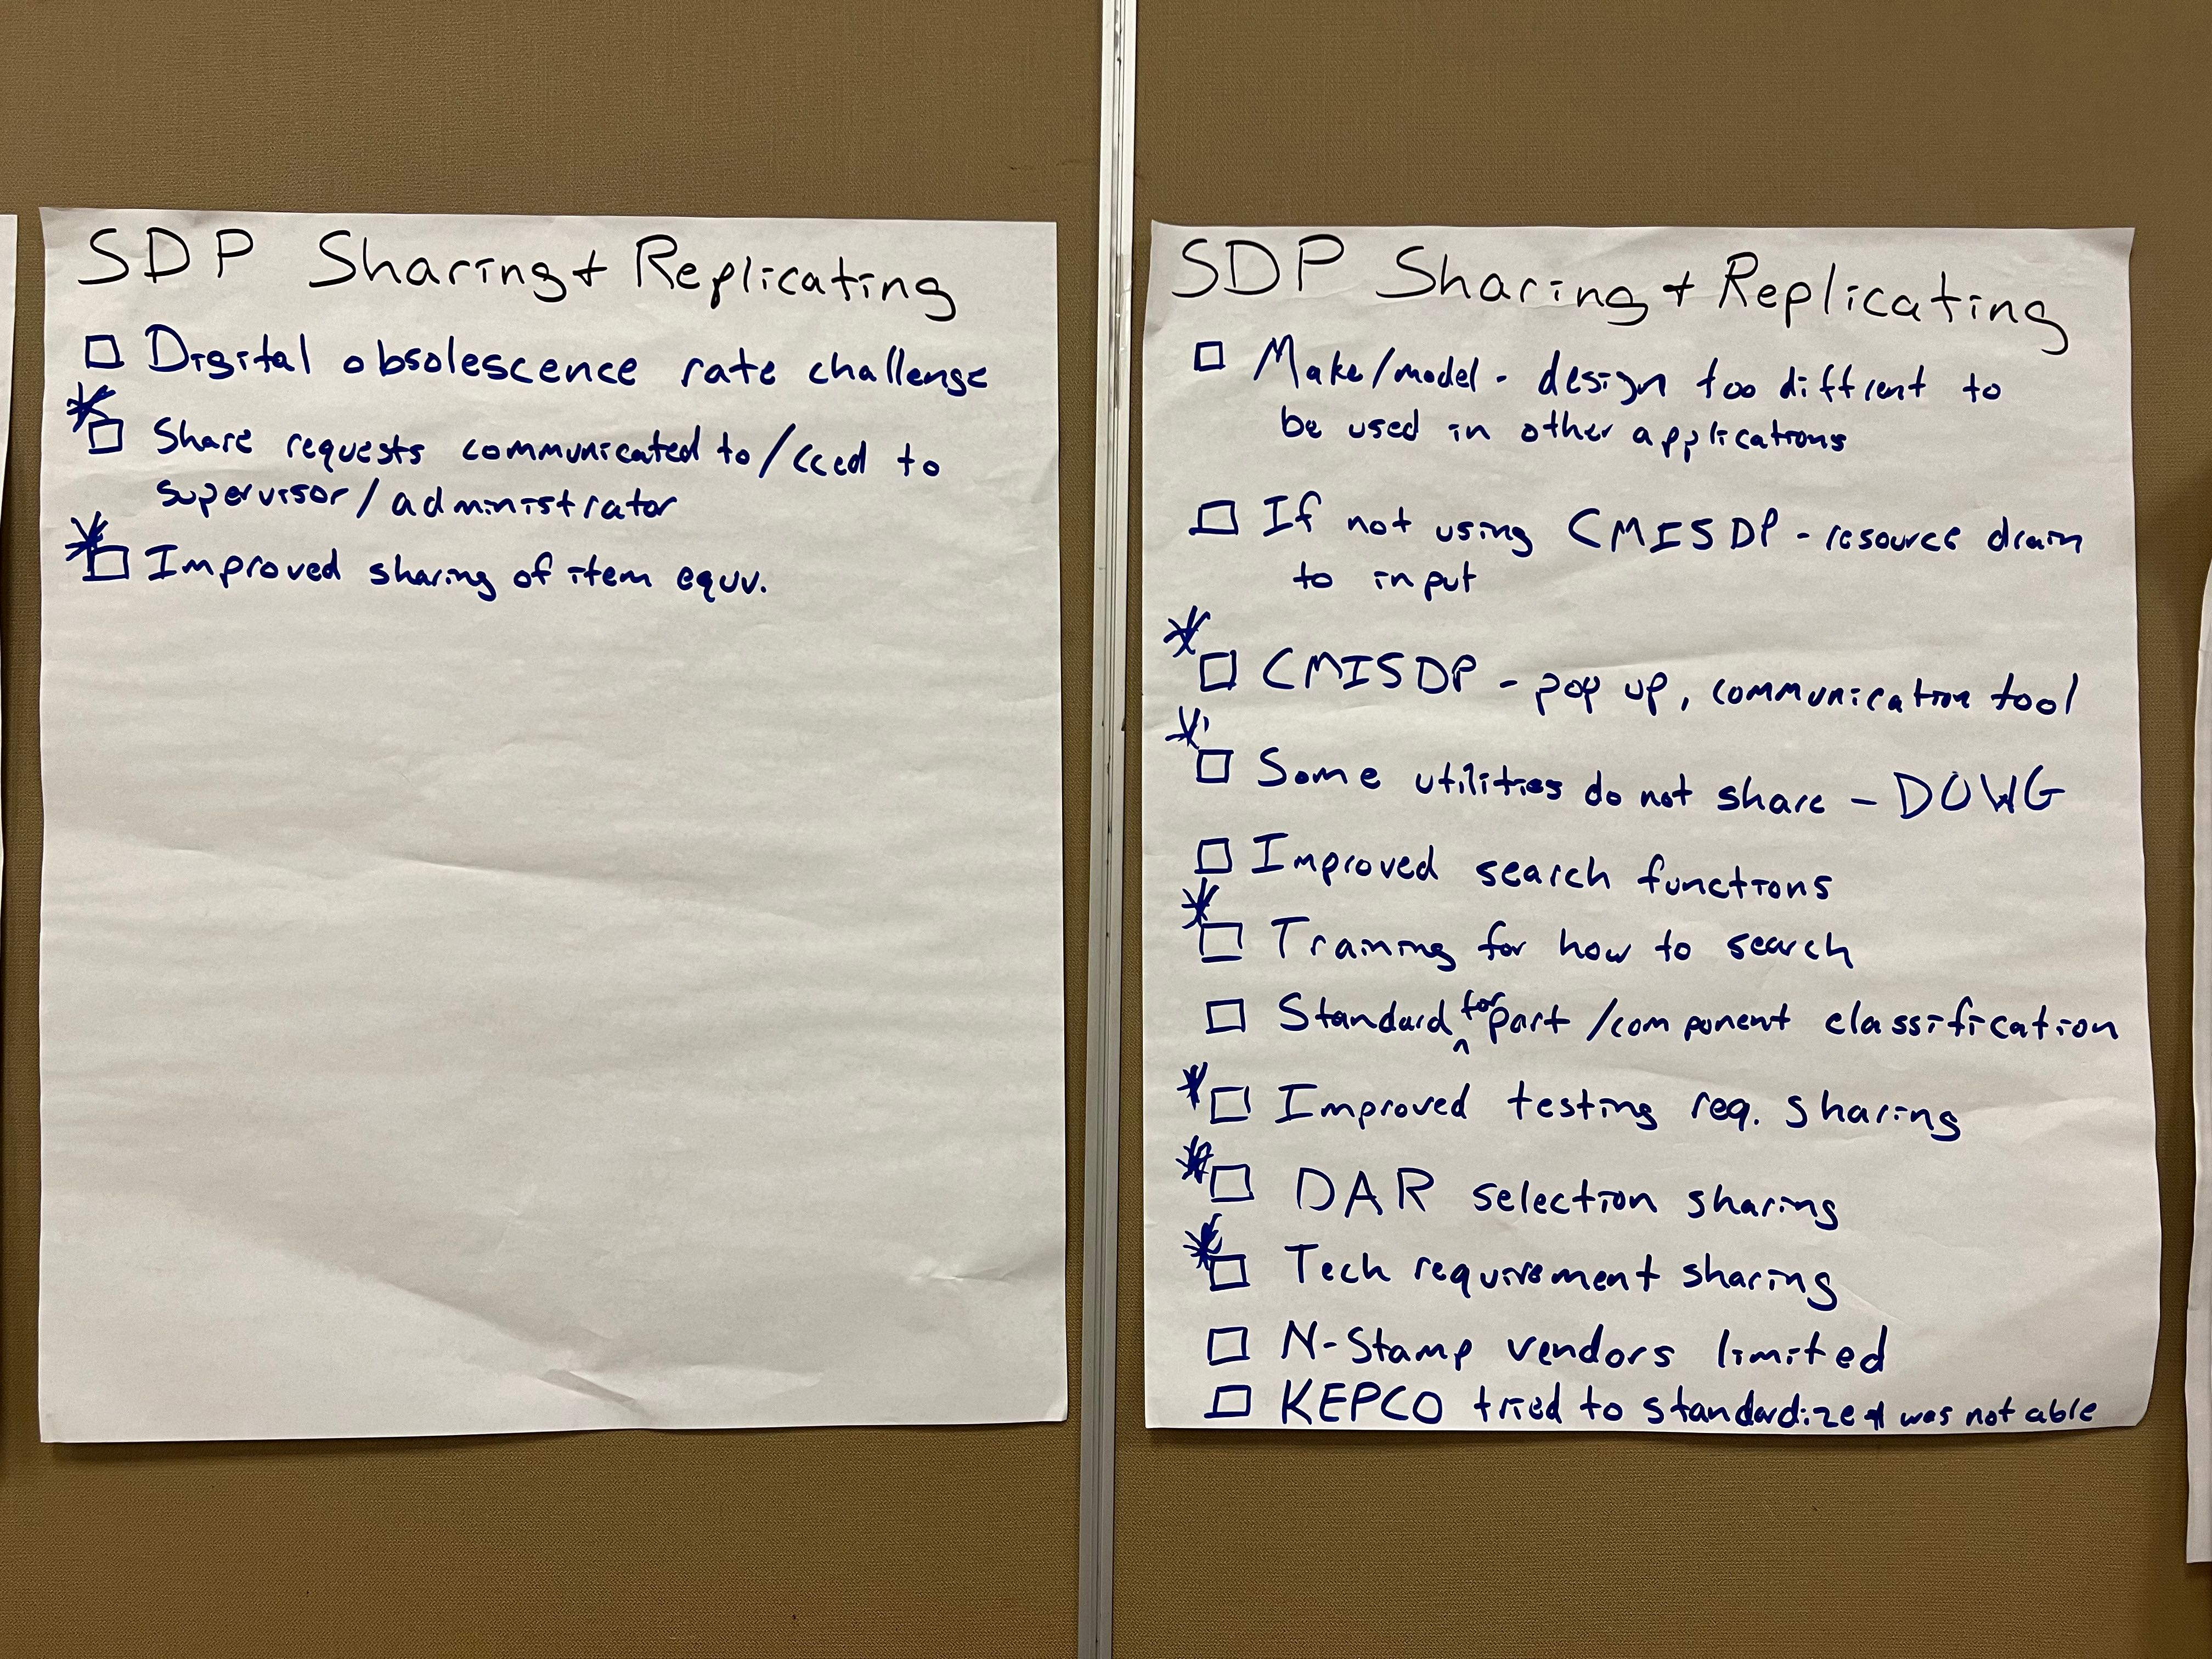 SDP Sharing + Replicating
☐ Digital obsolescence rate challenge
* ☐ Share requests communicated to / cced to
supervisor / administrator
* ☐ Improved sharing of item equv.
SDP Sharing + Replicating
☐ Make/model - design too diffrent to
be used in other applications
☐ If not using CMISDP - resource drain
to input
* ☐ CMISDP - pop up, communication tool
* ☐ Some utilities do not share - DOWG
☐ Improved search functions
* ☐ Training for how to search
☐ Standard for part / component classification
* ☐ Improved testing req. sharing
* ☐ DAR selection sharing
* ☐ Tech requirement sharing
☐ N-Stamp vendors limited
☐ KEPCO tried to standardize + was not able